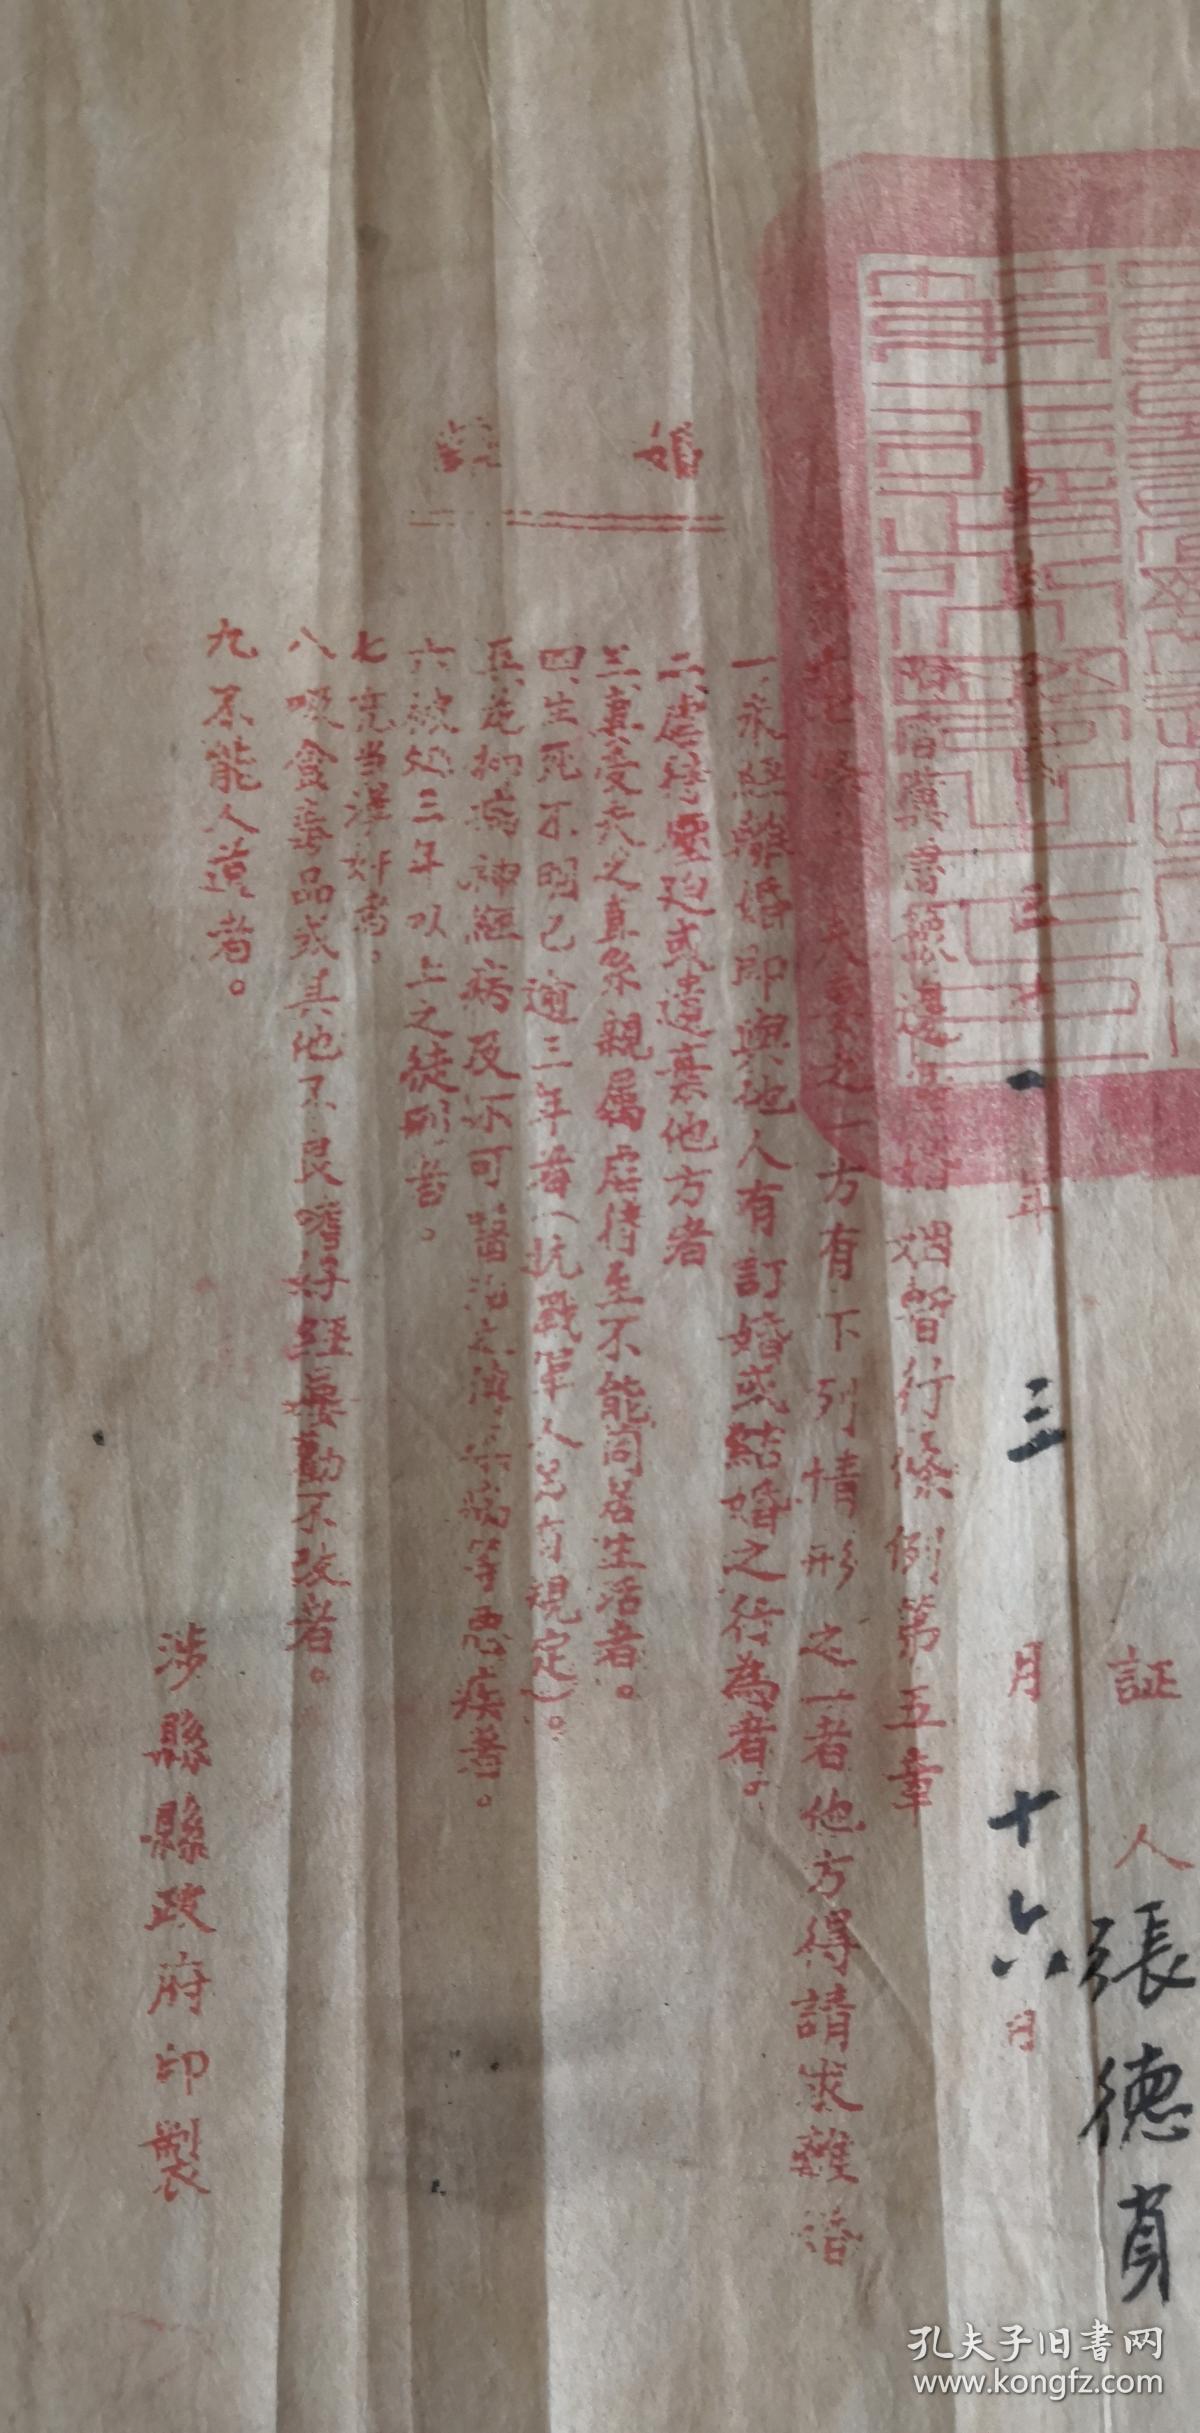 証 人 張德育
一年 三月 十六日
晋冀魯豫邊區婚姻暫行條例第五章
夫妻之一方有下列情形之一者他方得請求離婚
一、未經離婚即與他人有訂婚或結婚之行為者。
二、虐待壓迫或遺棄他方者
三、妻受夫之直系親属虐待至不能同居生活者。
四、生死不明已逾三年者(抗戰軍人另有規定)。
五、花柳病神經病及不可醫治之傳染病等惡疾者。
六、被處三年以上之徒刑者。
七、充当漢奸者。
八、吸食毒品或其他不良嗜好經屢勸不改者。
九、不能人道者。
婚
涉縣縣政府印製
孔夫子旧書网
www.kongfz.com